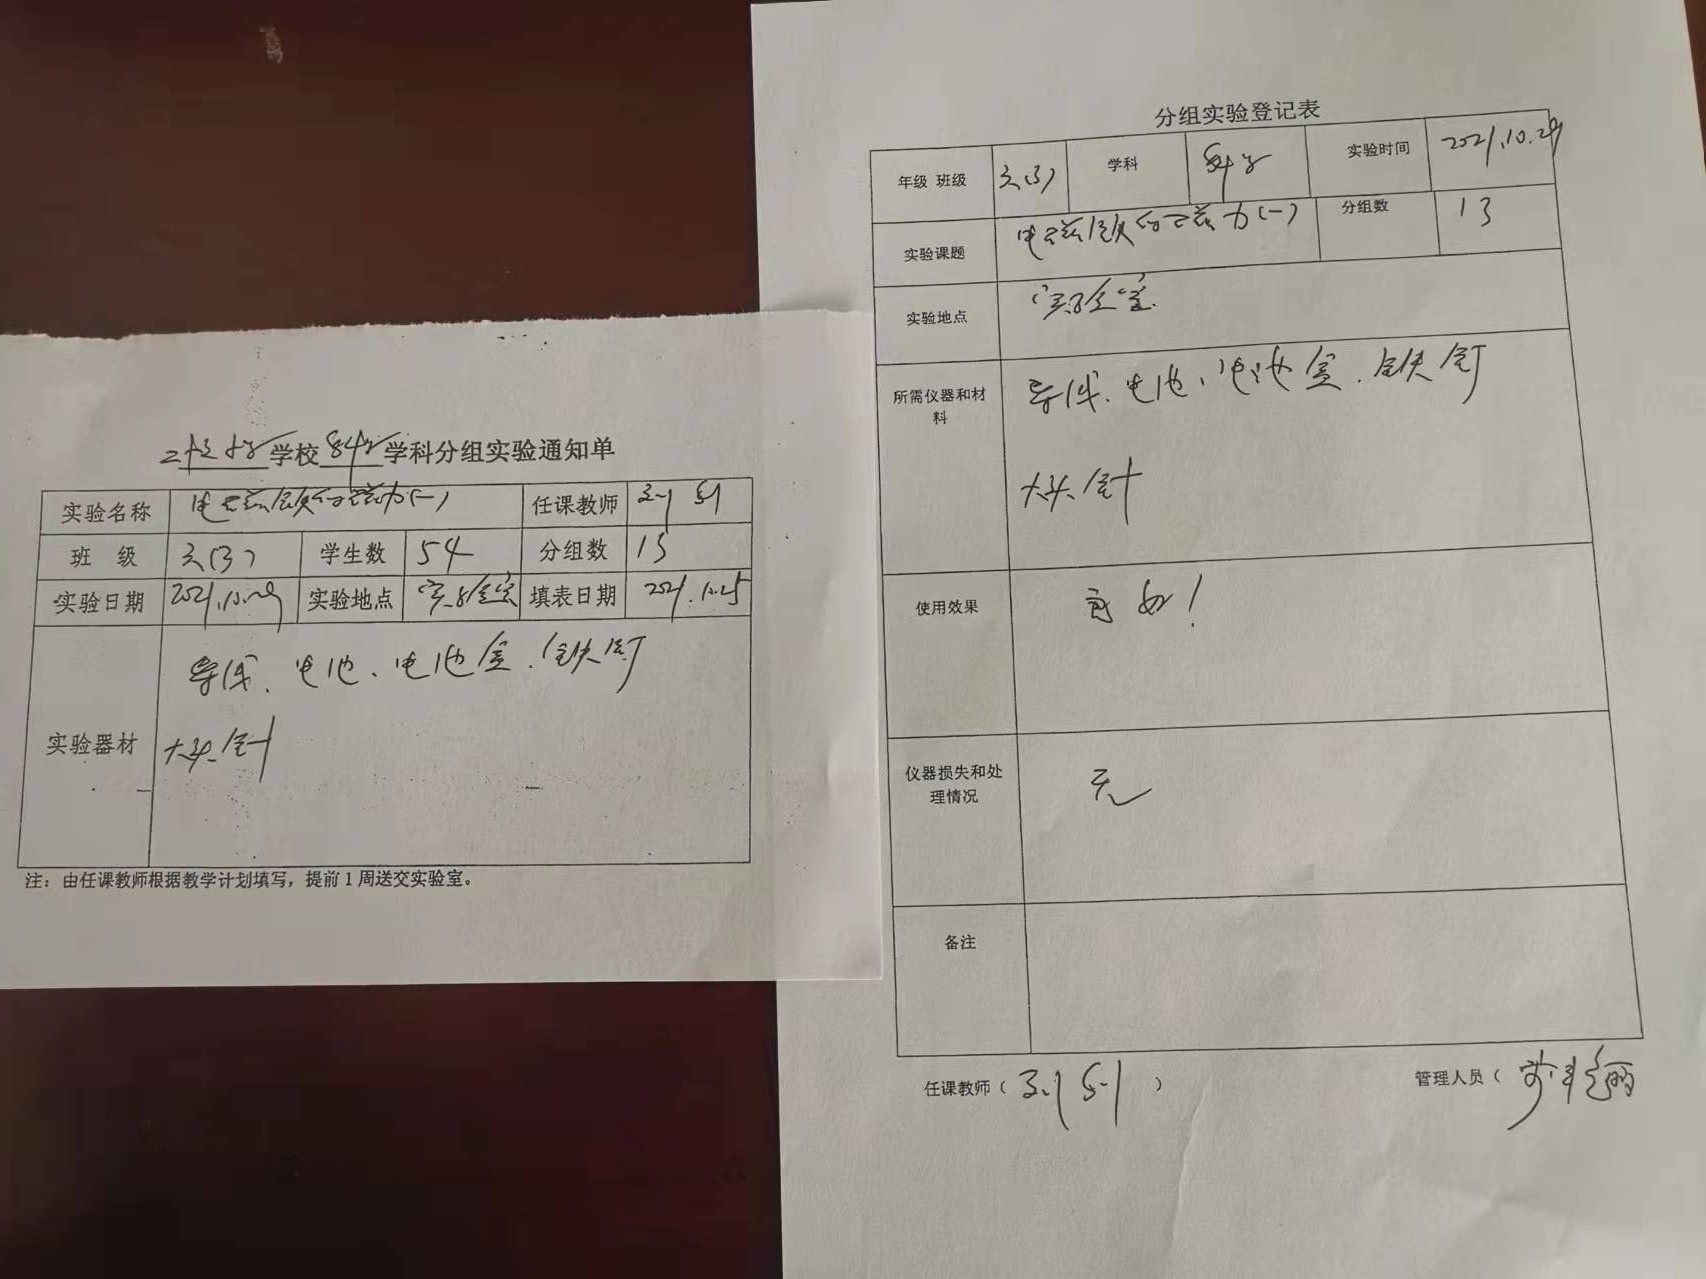 学校科学学科分组实验通知单
实验名称 电磁铁的磁力(一) 任课教师 刘
班 级 六(3) 学生数 54 分组数 13
实验日期 2021.10.29 实验地点 实验室 填表日期 2021.10.25
导线、电池、电池盒、铁钉
实验器材 大头针
注：由任课教师根据教学计划填写，提前1周送交实验室。
分组实验登记表
年级 班级 六(3) 学科 科学 实验时间 2021.10.29
实验课题 电磁铁的磁力(一) 分组数 13
实验地点 实验室
所需仪器和材料 导线、电池、电池盒、铁钉
大头针
使用效果 良好！
仪器损失和处理情况 无
备注
任课教师（ 刘 ） 管理人员（